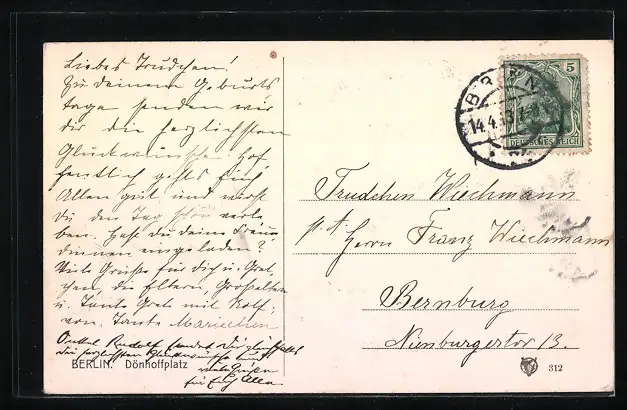 Liebes Trudchen!
Zu deinem Geburts
tage senden wir
dir die herzlichsten
Glückwünsche. Hof
fentlich gehts Euch
Allen gut und wirst
du den Tag schön verle
ben. Hast du deine Freun
dinnen eingeladen?
Viele Grüsse für dich u. Gret
chen die Eltern, Grosseltern
u. Tante Grete mit Rolf,
von Tante Mariechen
Onkel Rudolf sendet dir ebenfalls
die herzlichsten Glückwünsche und
viele Grüsse
für Euch Alle
BERLIN. Dönhoffplatz
5
DEUTSCHES REICH
14.4.13.
Trudchen Wiechmann
p. A. Herrn Franz Wiechmann
Bernburg
Nienburgertor 13.
312